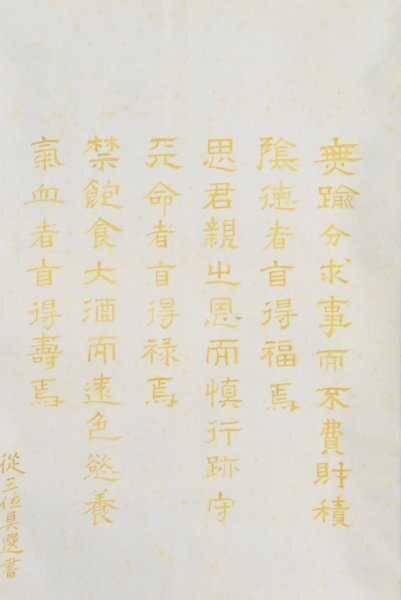 無踰分求事而不費財積
陰德者盲得福焉
思君親之恩而慎行跡守
天命者盲得祿焉
禁飽食大酒而遠色慾養
氣血者盲得壽焉
從三位具選書